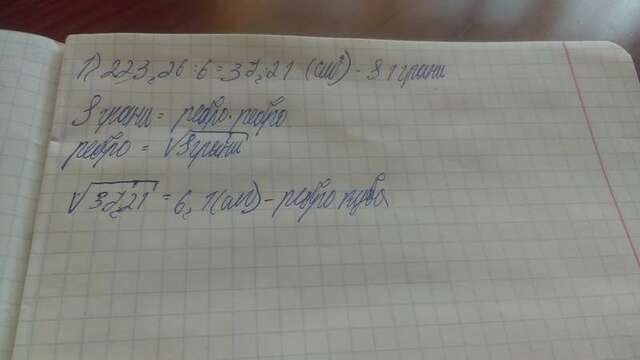 1) 223,26 : 6 = 37,21 (см²) - S 1 грани
S грани = ребро · ребро
ребро = √S грани
√37,21 = 6,1 (см) - ребро куба